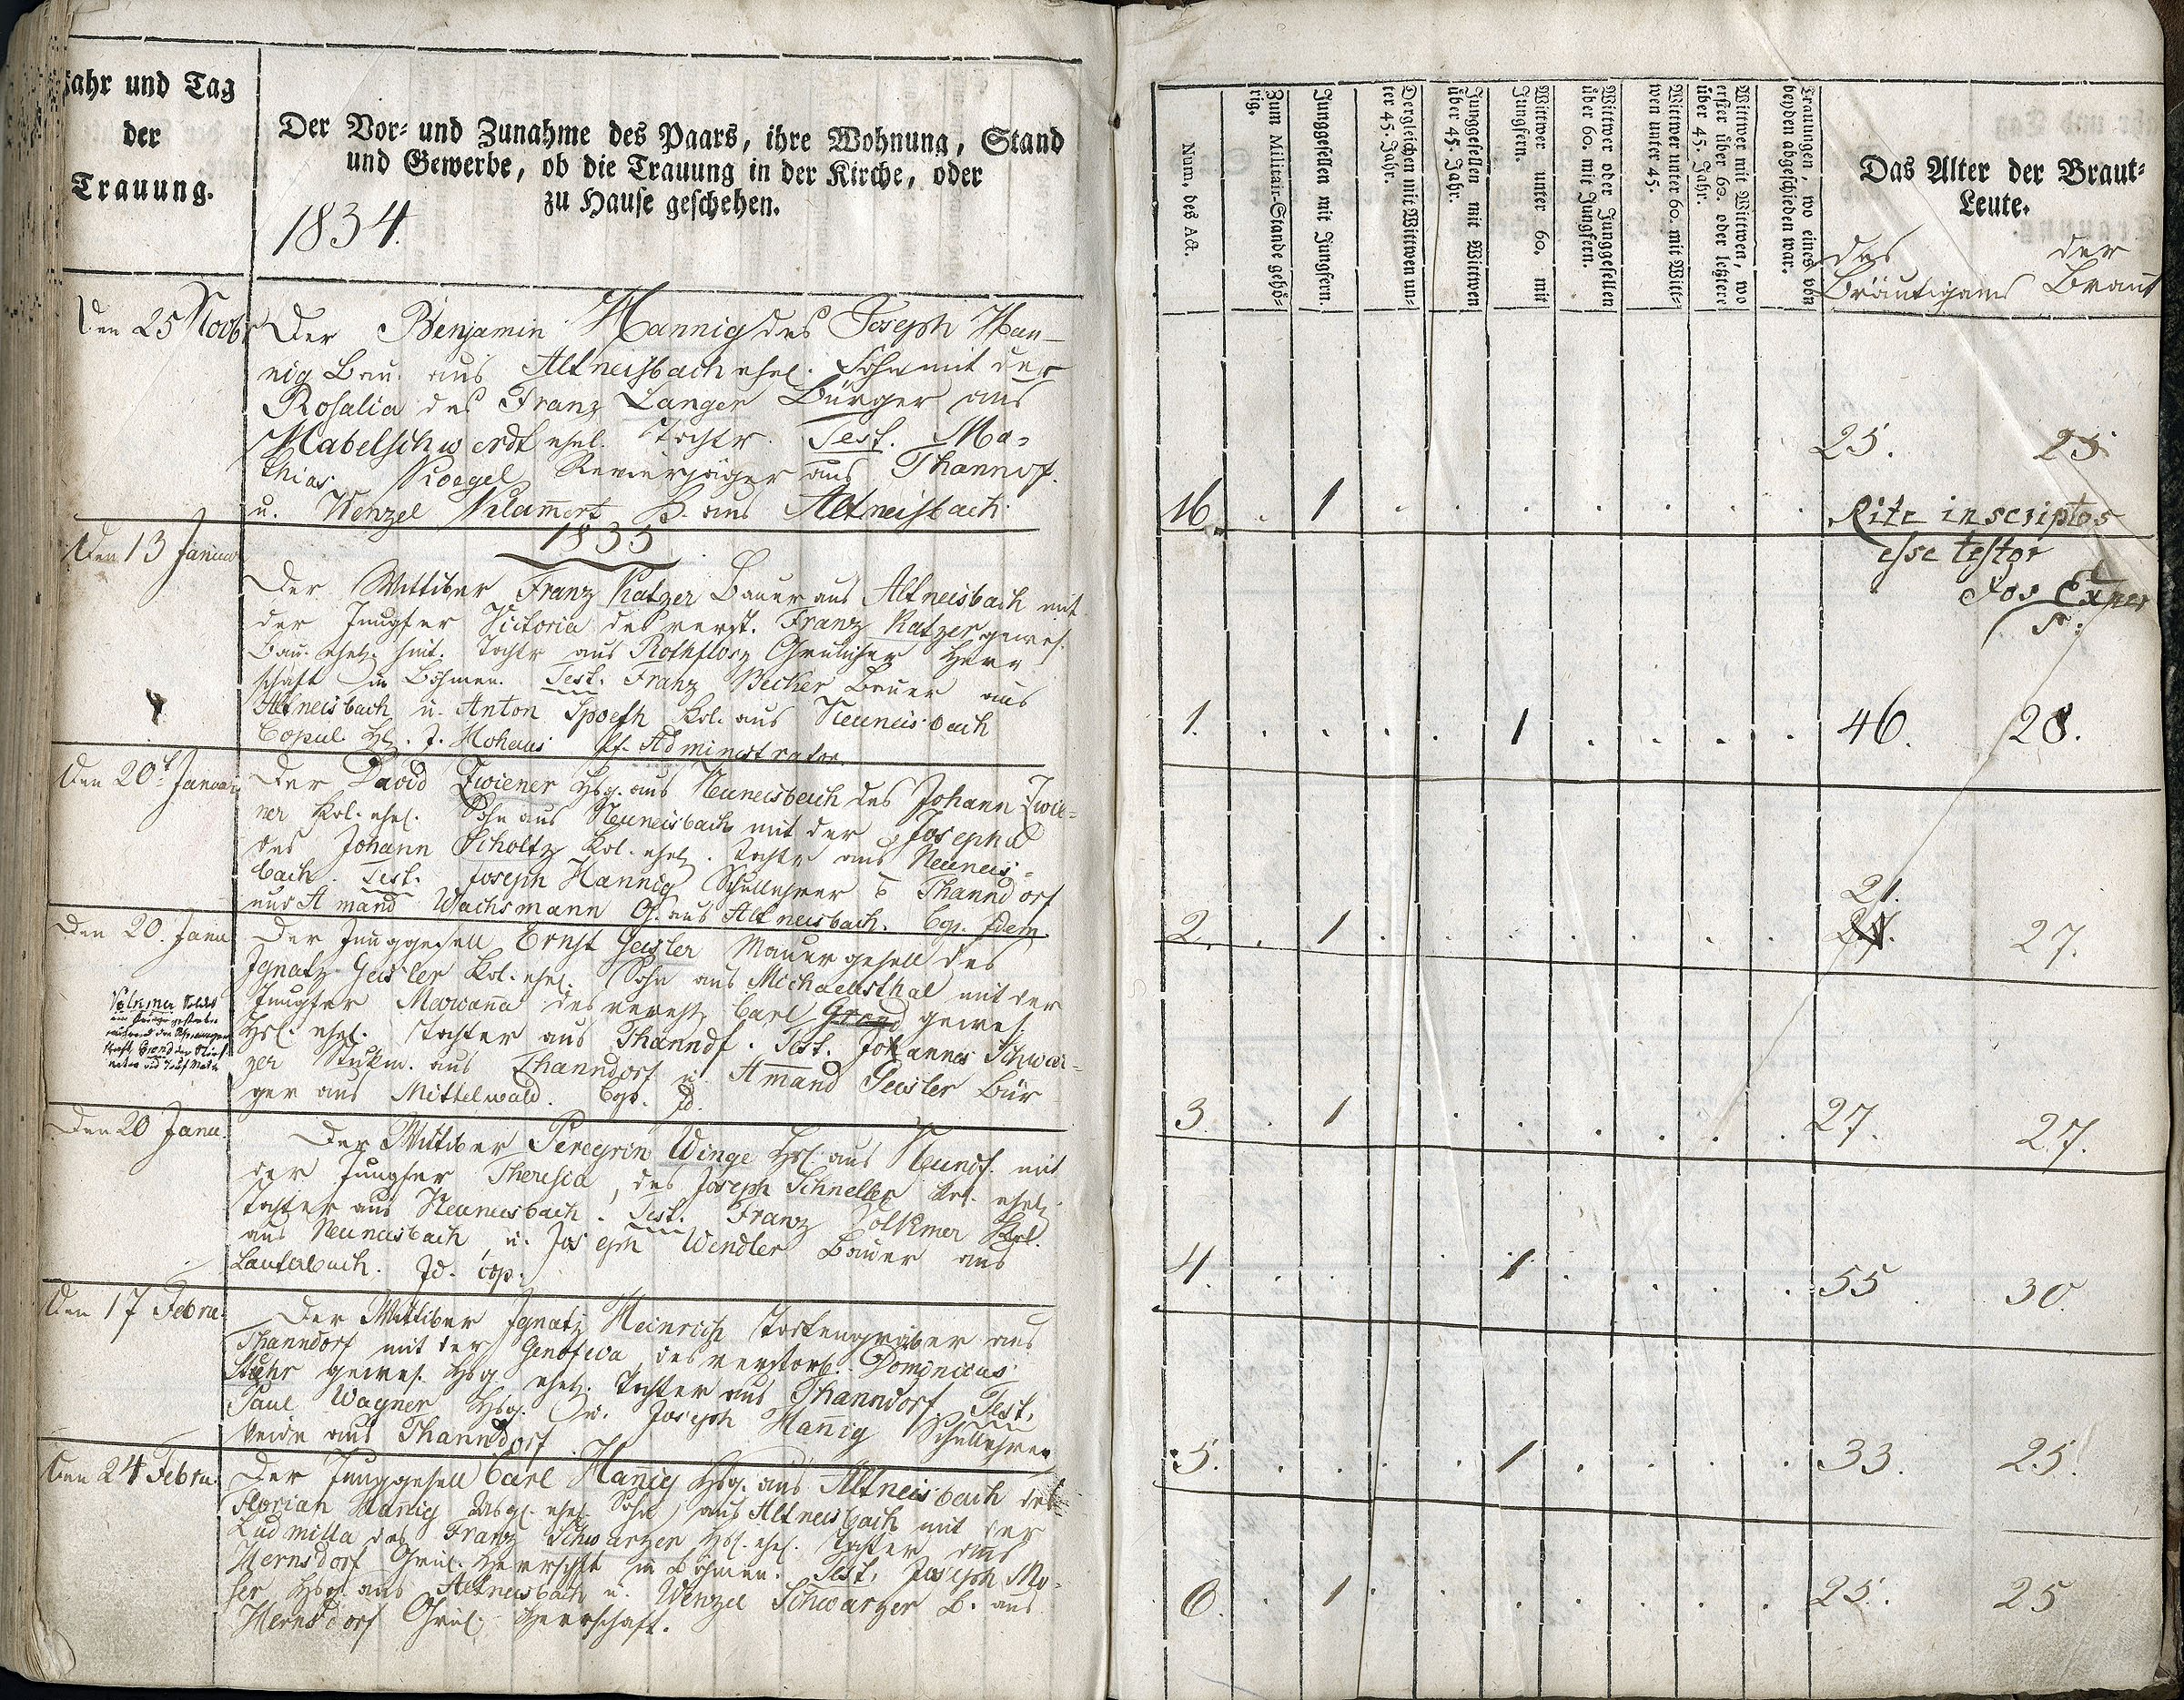 Jahr und Tag
der
Trauung.
Der Vor- und Zunahme des Paars, ihre Wohnung, Stand
und Gewerbe, ob die Trauung in der Kirche, oder
zu Hause geschehen.
1834.
Den 25 Novbr
Der Benjamin Hannig des Joseph Han-
nig Bau. aus Altneisbach ehel. Sohn mit der
Rosalia des Franz Langer Bürger aus
Habelschwerdt ehel. Tochtr. Test. Ma-
thias Koegel Revierjäger aus Thanndf.
u. Wenzel Klamert B. aus Altneisbach
1835
Den 13 Januar
Der Wittiber Franz Katzer Bauer aus Altneisbach mit
der Jungfer Victoria des verst. Franz Katzer gewes.
Bau. ehel. hint. Tochtr aus Rothflosz Grulicher Herr
schaft in Böhmen. Test. Franz Becker Bauer aus
Altneisbach u. Anton Spoeth Kol. aus Neuneisbach
Copul. H. J. Hohaus Pf. Administrator.
Den 20t Januar
Der David Zwiener Hsg. aus Neuneisbach des Johann Zwie-
ner Kol. ehel. Sohn aus Neuneisbach mit der Josepha
des Johann Scholtz Kol. ehel. Tochtr aus Neuneis-
bach. Test. Joseph Hannig Schullehrer Thanndorf
und Amand Wachsmann G. aus Altneisbach. Cop. Idem.
Den 20. Janu
Der Junggesell Ernst Geisler Mauergesell des
Ignatz Geisler Kol. ehel. Sohn aus Michaelisthal mit der
Jungfer Marianna des verst. Carl Grond gewes.
Hsl. ehel. Tochter aus Thanndf. Test. Johannes Schwar-
zer Stukm. aus Thanndorf u. Amand Geisler Bür
ger aus Mittelwald. Cop. Jd.
Den 20 Janu.
Der Wittiber Peregrin Winge Hsl. aus Neundf. mit
der Jungfer Theresia, des Joseph Schneller Kol. ehel.
Tochter aus Neuneisbach. Test. Franz Volkmer Kol.
aus Neuneisbach u. Joseph Wendler Bauer aus
Lauterbach. Jd. cop.
Den 17 Febru.
Der Wittiber Ignatz Heinrich Todtengräber aus
Thanndorf mit der Genofeva des verstorb. Dominicus
Stuhr gewes. Hsg. ehel. Tochter aus Thanndorf Test.
Paul Wagner Hsg. u. Joseph Hanig Schullehrer
beide aus Thanndorf
Den 24 Febru.
Der Junggesell Carl Hanig Hsg. aus Altneisbach des
Florian Hanig ehel. Sohn aus Altneisbach mit der
Ludmilla des Franz Schwarzer Hsl. ehel. Tochter aus
Hernsdorf Grul. Herrschft in Böhmen. Test. Joseph Mo-
ser Hsg. aus Altneisbach u. Wenzel Schwarzer B. aus
Hernsdorf Grul. Herrschaft.
Num. des Act.
Zum Militair-Stande gehö-
rig.
Junggesellen mit Jungfern.
Dergleichen mit Wittwen un-
ter 45. Jahr.
Junggesellen mit Wittwen
über 45. Jahr.
Wittwer unter 60. mit
Jungfern.
Wittwer oder Junggesellen
über 60. mit Jungfern.
Wittwer unter 60. mit Witt-
wen unter 45.
Wittwer mit Wittwen, wo
erster über 60. oder letztere
über 45. Jahr.
Trauungen, wo eines von
beyden abgeschieden war.
Das Alter der Braut-
Leute.
des
Bräutigams
der
Braut
16. 1 25. 25
Rite inscriptos
esse testor
Jos Exner
1. 1 46. 28.
21.
2. 1 27.
3. 1 27. 27.
4. 1 55 30.
5. 1 33. 25.
6. 1 25. 25